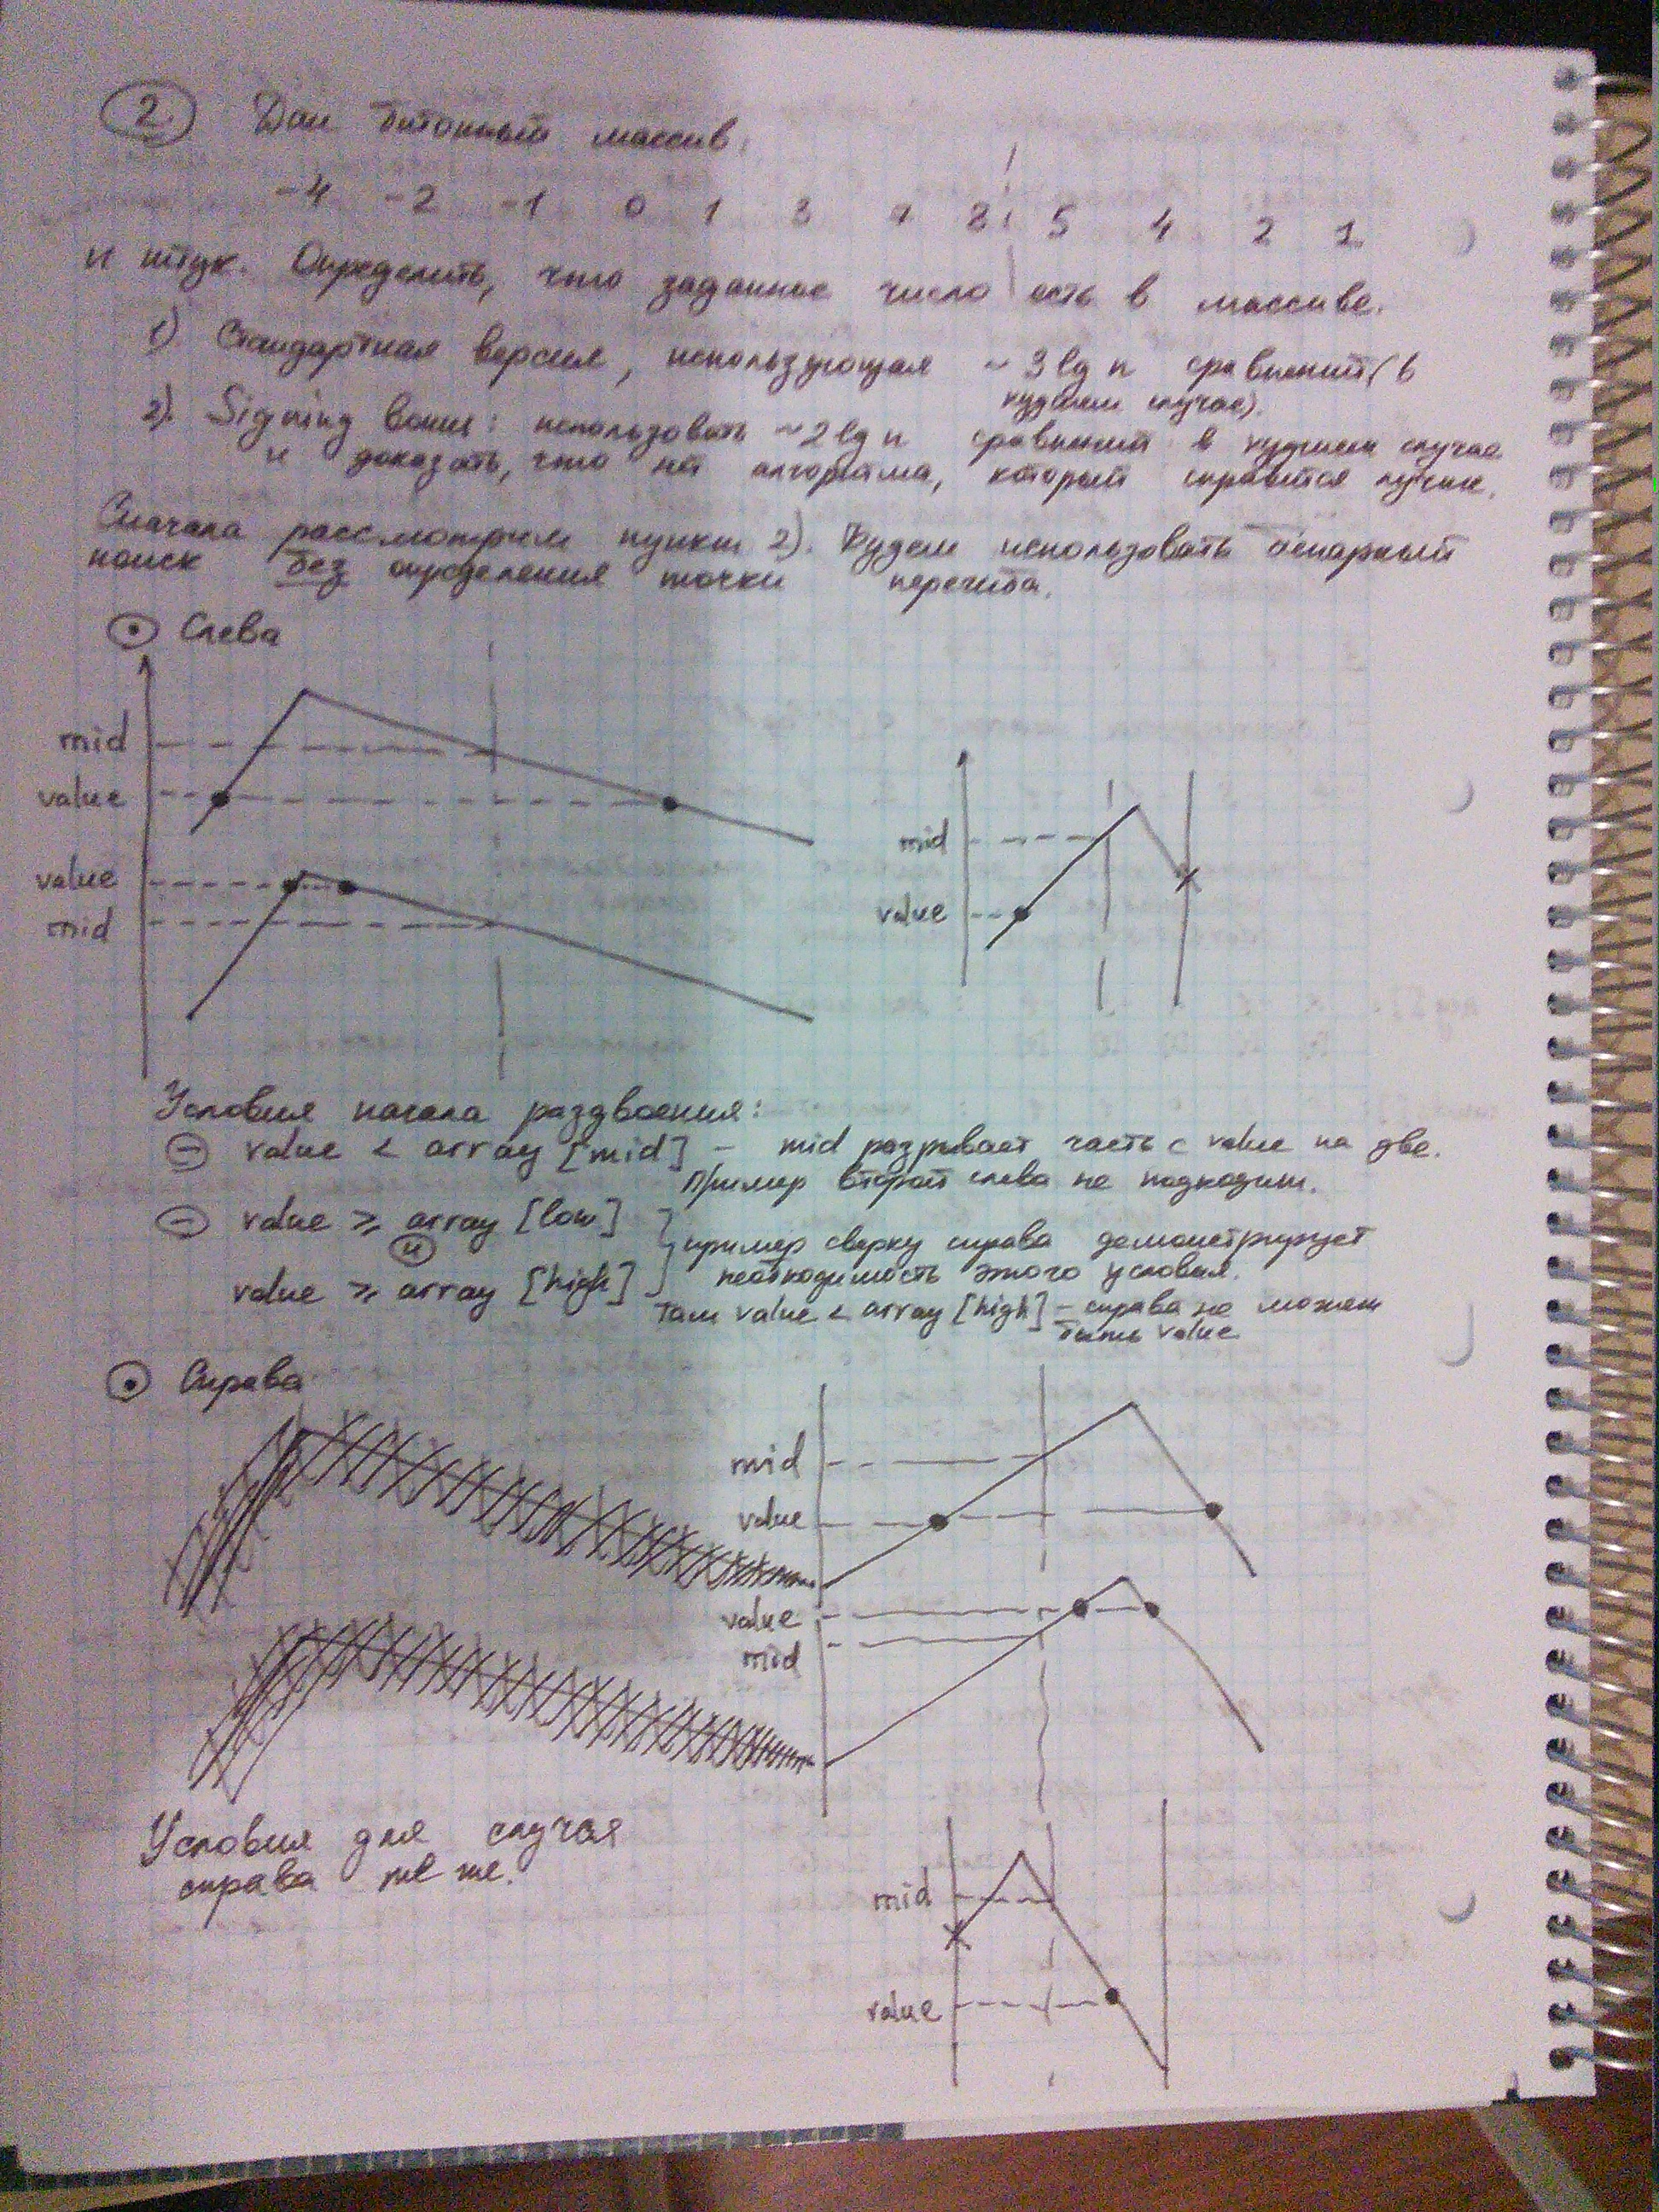 2. Дан битонный массив.
-4 -2 -1 0 1 3 7 8 5 4 2 1
n штук. Определить, что заданное число есть в массиве.
1) Стандартная версия, использующая ~3 lg n сравнений (в
худшем случае).
2). Signing bonus: использовать ~2 lg n сравнений в худшем случае
и доказать, что нет алгоритма, который справится лучше.
Сначала рассмотрим пункт 2). Будем использовать бинарный
поиск без определения точки перегиба.
Слева
mid
value
value
mid
mid
value
Условия начала раздвоения:
value < array [mid] - mid разрывает часть с value на две.
Пример второй слева не подходит.
value ⩾ array [low]
и
value ⩾ array [high]
пример сверху справа демонстрирует
необходимость этого условия.
Там value < array [high] - справа не может
быть value
Справа
mid
value
value
mid
Условия для случая
справа те же.
mid
value